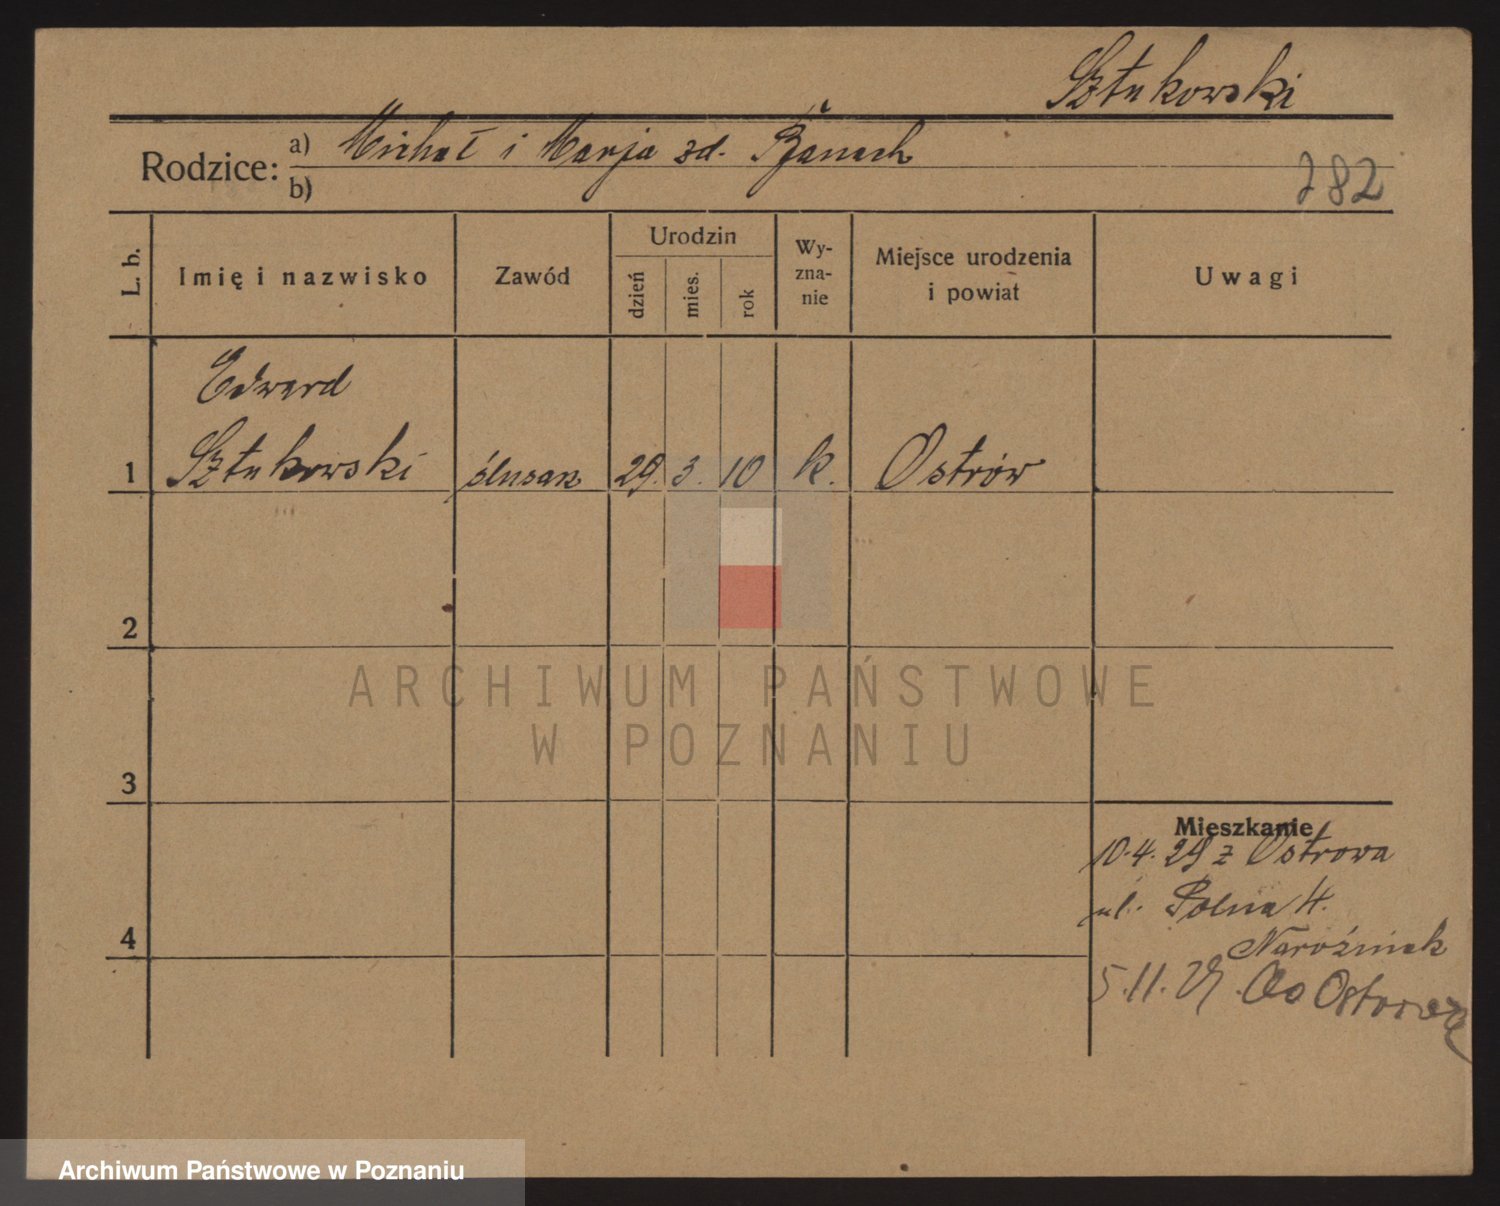 Sztukowski
Rodzice: a) Michał i Marja zd. Banach
b)
782
L. b.
Imię i nazwisko
Zawód
Urodzin
dzień
mies.
rok
Wy-
zna-
nie
Miejsce urodzenia
i powiat
Uwagi
Edward
1 Sztukowski ślusarz 29. 3. 10 k. Ostrów
2
3
4
Mieszkanie
10.4.29 z Ostrowa
ul. Polna 4.
Narożniak
5.11.29. do Ostrowa
ARCHIWUM PAŃSTWOWE
W POZNANIU
Archiwum Państwowe w Poznaniu